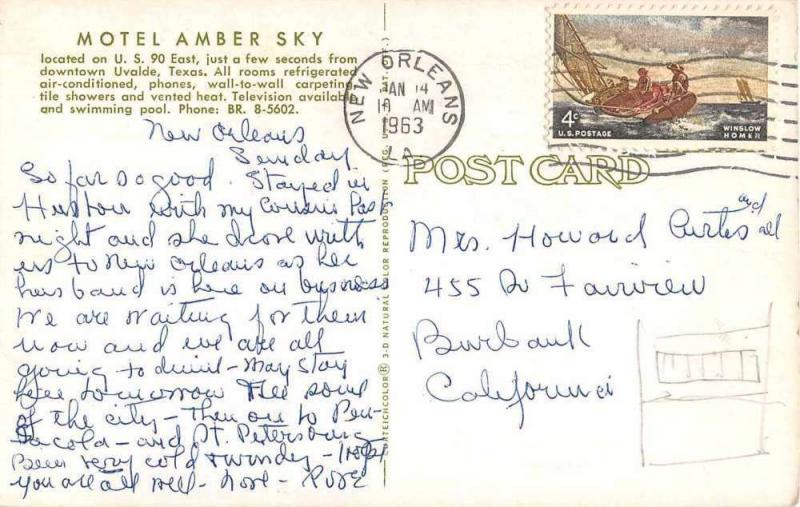 MOTEL AMBER SKY
located on U. S. 90 East, just a few seconds from
downtown Uvalde, Texas. All rooms refrigerated
air-conditioned, phones, wall-to-wall carpeting,
tile showers and vented heat. Television available
and swimming pool. Phone: BR. 8-5602.
New Orleans
Sunday
So far so good. Stayed in
Huston with my cousin last
night and she drove with
us to New Orleans as her
husband is here on business
We are waiting for them
now and we are all
going to dinner - May stay
here tomorrow see some
of the city - Then on to Pen-
sacola - and St. Petersburg
Been very cold & windy - Hope
you are all well - Love - Rose
CURTEICHCOLOR® 3-D NATURAL COLOR REPRODUCTION (REG. U.S.A. PAT. OFF.)
NEW ORLEANS
JAN 14
10 AM
1963
LA.
4c
U.S. POSTAGE
WINSLOW
HOMER
POST CARD
Mrs. Howard Curtes and all
455 Fairview
Burbank
California